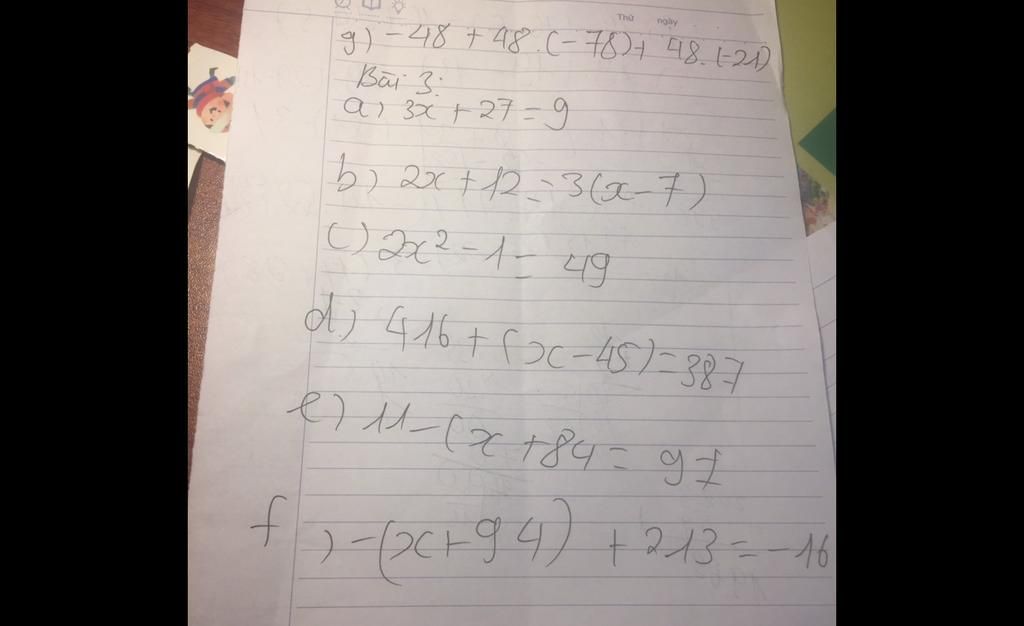 Thứ ngày
g) -48 + 48 . (-78) + 48 . (-21)
Bài 3:
a) 3x + 27 = 9
b) 2x + 12 = 3(x - 7)
c) 2x² - 1 = 49
d) 416 + (x - 45) = 387
e) 11 - (x + 84 = 97
f) -(x + 94) + 213 = -16